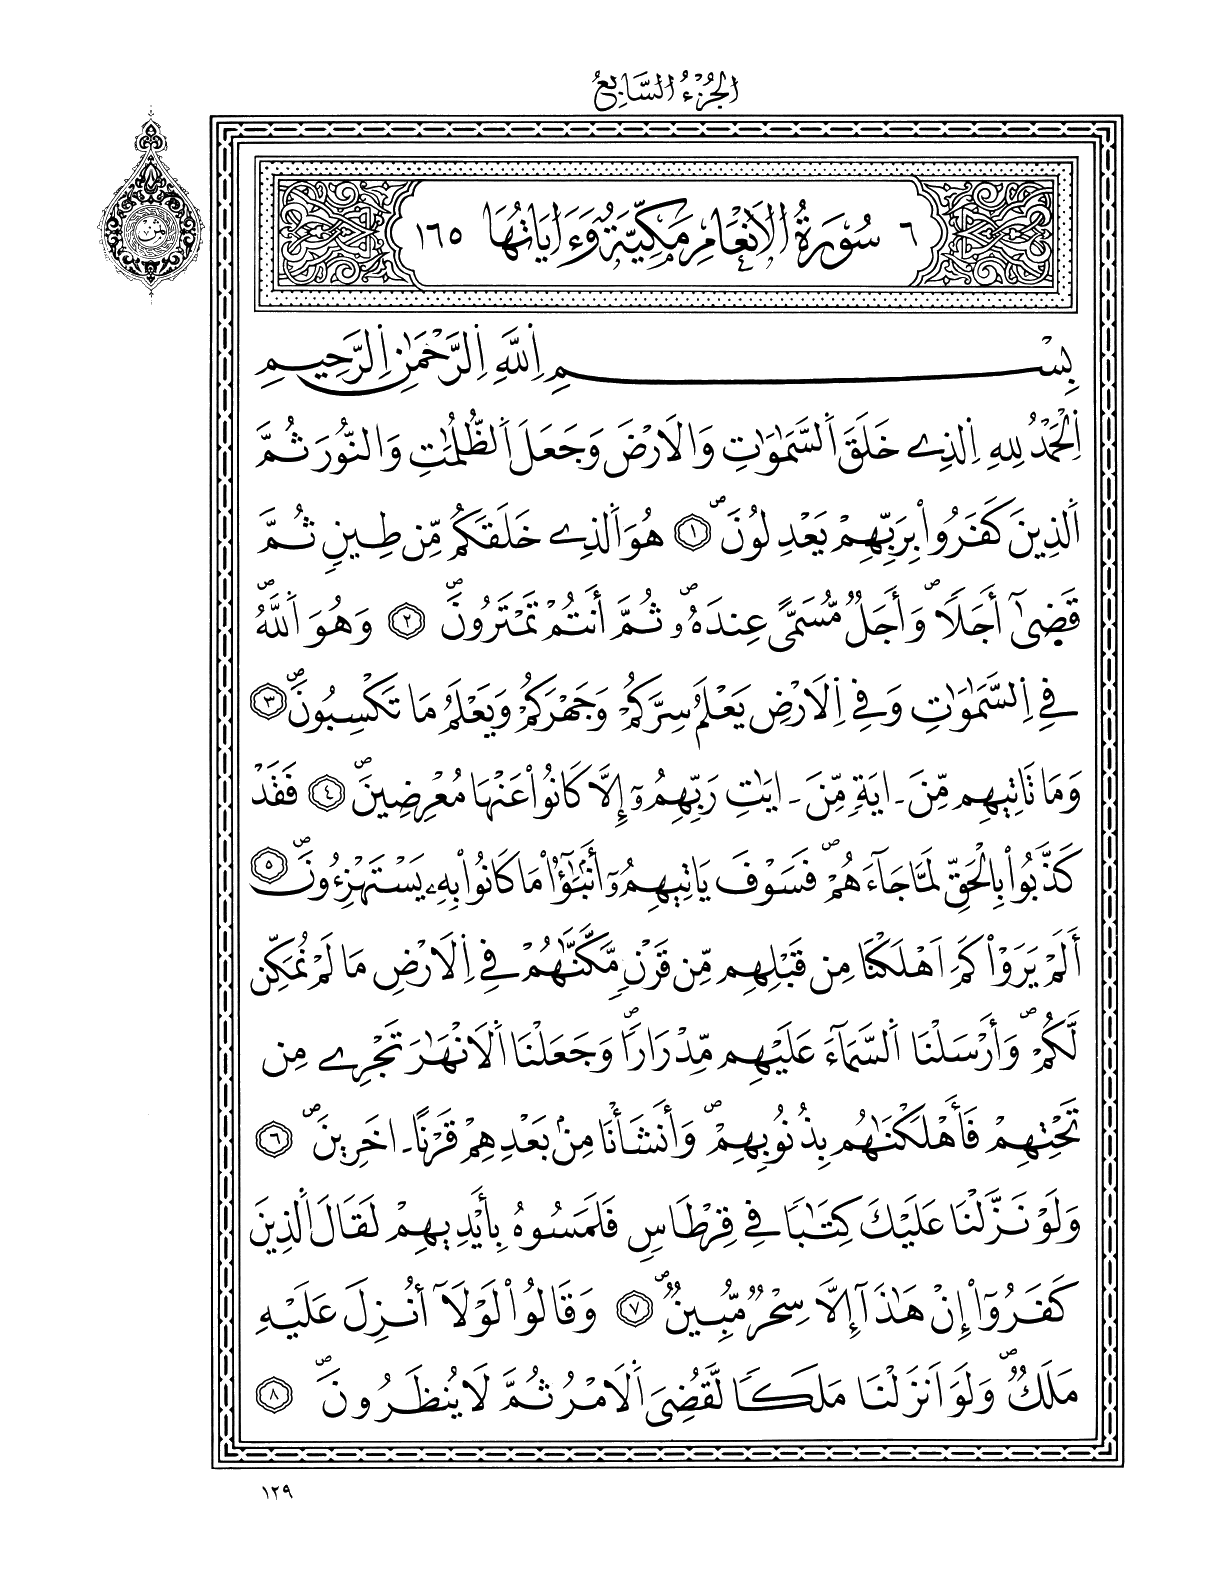 الجزء السابع
٦ سُورَةُ الَانْعَامِ مَكِّيَّةٌ وَءَايَاتُهَا ١٦٥
بِسْمِ اِللَّهِ اِلرَّحْمَٰنِ اِلرَّحِيمِ
اِلْحَمْدُ لِلهِ اِلذِے خَلَقَ اَلسَّمَٰوَٰتِ وَالَارْضَ وَجَعَلَ اَلظُّلُمَٰتِ وَالنُّورَ ثُمَّ
اَلذِينَ كَفَرُواْ بِرَبِّهِمْ يَعْدِلُونَۖ ١ هُوَ اَلذِے خَلَقَكُم مِّن طِينٖ ثُمَّ
قَضَىٰٓ أَجَلاٗۖ وَأَجَلٞ مُّسَمًّى عِندَهُۥۖ ثُمَّ أَنتُمْ تَمْتَرُونَۖ ٢ وَهُوَ اَللَّهُۖ
فِے اِلسَّمَٰوَٰتِ وَفِے اِلَارْضِ يَعْلَمُ سِرَّكُمْ وَجَهْرَكُمْ وَيَعْلَمُ مَا تَكْسِبُونَۖ ٣
وَمَا تَاتِيهِم مِّنَ ـ ايَةٖ مِّنَ ـ ايَٰتِ رَبِّهِمُۥٓ إِلَّا كَانُواْ عَنْهَا مُعْرِضِينَۖ ٤ فَقَدْ
كَذَّبُواْ بِالْحَقِّ لَمَّا جَآءَهُمْۖ فَسَوْفَ يَاتِيهِمُۥٓ أَنۢبَٰٓؤُاْ مَا كَانُواْ بِهِۦ يَسْتَهْزِءُونَۖ ٥
أَلَمْ يَرَوْاْ كَمَ اَهْلَكْنَا مِن قَبْلِهِم مِّن قَرْنٖ مَّكَّنَّٰهُمْ فِے اِلَارْضِ مَا لَمْ نُمَكِّن
لَّكُمْۖ وَأَرْسَلْنَا اَلسَّمَآءَ عَلَيْهِم مِّدْرَاراٗۖ وَجَعَلْنَا اَلَانْهَٰرَ تَجْرِے مِن
تَحْتِهِمْ فَأَهْلَكْنَٰهُم بِذُنُوبِهِمْۖ وَأَنشَأْنَا مِنۢ بَعْدِهِمْ قَرْناً ـ اخَرِينَۖ ٦
وَلَوْ نَزَّلْنَا عَلَيْكَ كِتَٰباٗ فِے قِرْطَاسٖ فَلَمَسُوهُ بِأَيْدِيهِمْ لَقَالَ اَلذِينَ
كَفَرُوٓاْ إِنْ هَٰذَآ إِلَّا سِحْرٞ مُّبِينٞۖ ٧ وَقَالُواْ لَوْلَآ أُنزِلَ عَلَيْهِ
مَلَكٞۖ وَلَوَ اَنزَلْنَا مَلَكاٗ لَّقُضِيَ اَلَامْرُ ثُمَّ لَا يُنظَرُونَۖ ٨
١٢٩